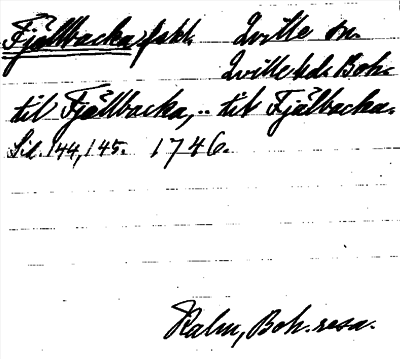 Fjällbacka: fskl. Qville sn.
Qville hd. Boh.
til Fjällbacka, .. til Fjälbacka.
Sid. 144, 145. 1746.
Kalm, Boh. resa.